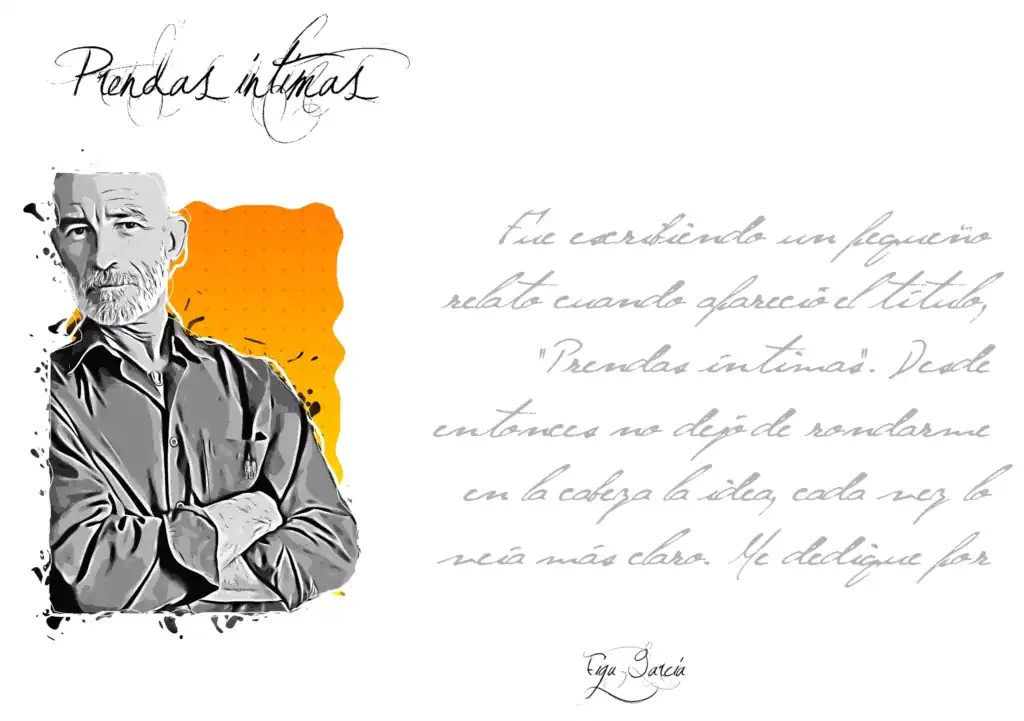 Prendas intimas
Fue escribiendo un pequeño
relato cuando apareció el título,
"Prendas íntimas". Desde
entonces no dejó de rondarme
en la cabeza la idea, cada vez lo
veía más claro. Me dedique por
Figu García